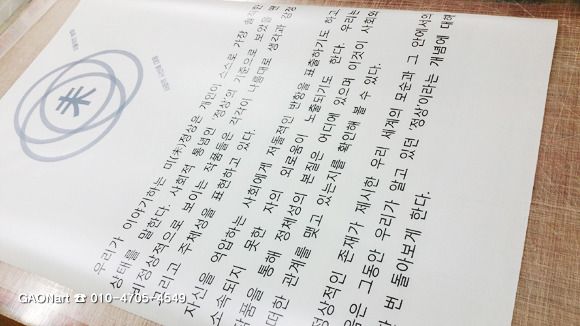 未
우리가 이야기하는 미(未)정상은 개인이 스스로 가장 솔직한
상태를 말한다. 사회적 통념인 '정상'의 기준으로 보았을 때
비정상적으로 보이는 작품들은 각각이 나름대로 생각과 감정
그리고 주체성을 표현하고 있다.
자신을 억압하는 사회에게 저돌적인 반항을 표출하기도 하고
소속되지 못한 자의 외로움이 노출되기도 한다. 우리는
작품을 통해 정체성의 본질은 어디에 있으며 이것이 사회와
어떠한 관계를 맺고 있는지를 확인해 볼 수 있다.
정상적인 존재가 제시한 우리 세계의 모순과 그 안에서의
그동안 우리가 알고 있던 '정상'이라는 개념에 대해
한 번 돌아보게 한다.
GAONart ☎ 010-4705-4549